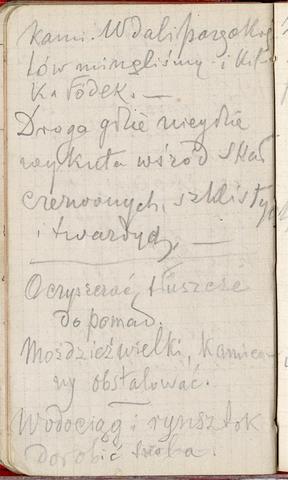 kami. W dali parę okrę
tów minęliśmy i kil-
ka łódek. —
Droga gdzie niegdzie
wykuta wśród skał
czerwonych, szklistych
i twardych, —
Oczyszczać tłuszcze
do pomad.
Moździeż wielki, kamien-
ny obstalować.
Wodociąg i rynsztok
dorobić